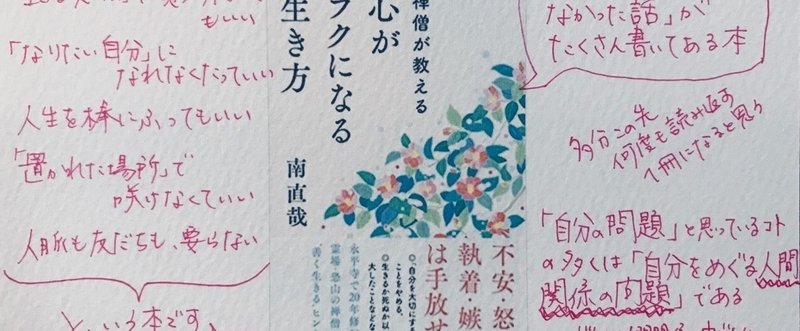 もいい
「なりたい自分」に
なれなくだっていい
人生を棒にふってもいい
「置かれた場所」で
咲けなくていい
人脈も友だちも、要らない
という本です。
禅僧が教える
心が
ラクになる
生き方
南直哉
不安・怒
執着・嫉
は手放せ
◎「自分を大切にする
ことをやめる。
◎生きるか死ぬか以
大したことなどな
永平寺で20年修
霊場恐山の禅僧
「善く生きる」ヒン
なかった話」が
たくさん書いてある本
多分この先
何度も読み返す
1冊になると思う
「自分の問題」と思っているコト
の多くは「自分をめぐる人間
関係の問題」である